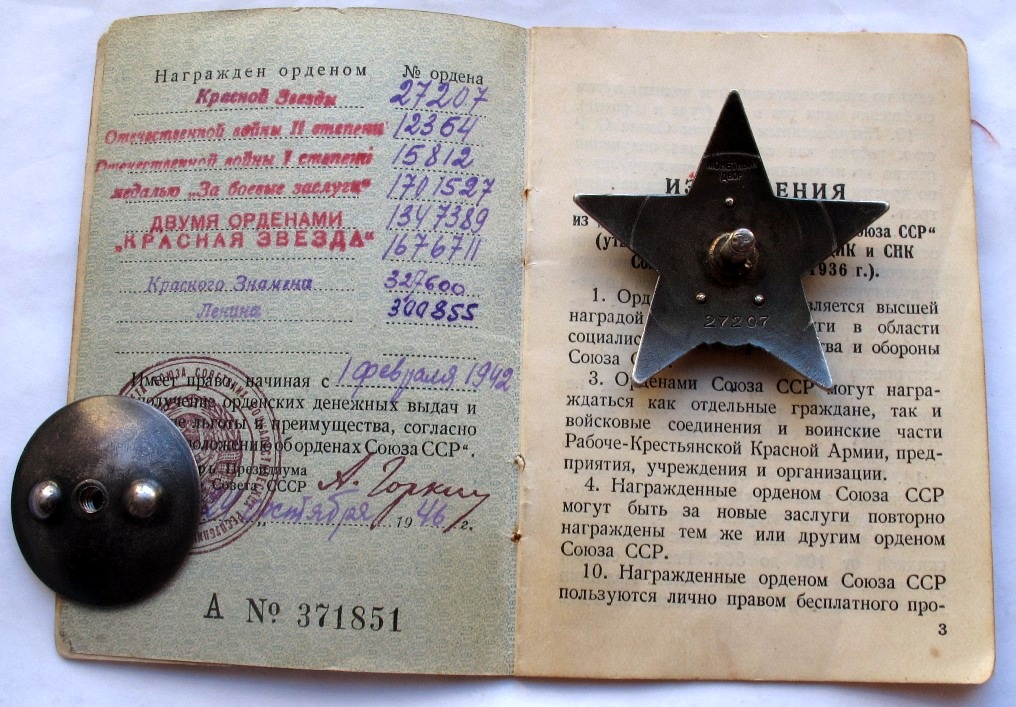 Награжден орденом № ордена
Красной Звезды 27207
Отечественной войны II степени 12364
Отечественной войны I степени 15812
медалью „За боевые заслуги" 1701527
ДВУМЯ ОРДЕНАМИ 1347389
„КРАСНАЯ ЗВЕЗДА" 1676711
Красного Знамени 327600
Ленина 300855
Имеет право, начиная с 1 февраля 1942
получение орденских денежных выдач и
льготы и преимущества, согласно
об орденах Союза ССР".
Президиума
Совета СССР А. Горкин
19 46 г.
А № 371851
МОНЕТНЫЙ
ДВОР
27207
ИЗ ЕНИЯ
из оюза ССР"
(ут ЦИК и СНК
Со 1936 г.).
1. Орд вляется высшей
наградой ги в области
социалис ва и обороны
Союза С
3. Орденами Союза ССР могут награ-
ждаться как отдельные граждане, так и
войсковые соединения и воинские части
Рабоче-Крестьянской Красной Армии, пред-
приятия, учреждения и организации.
4. Награжденные орденом Союза ССР
могут быть за новые заслуги повторно
награждены тем же или другим орденом
Союза ССР.
10. Награжденные орденом Союза ССР
пользуются лично правом бесплатного про-
3